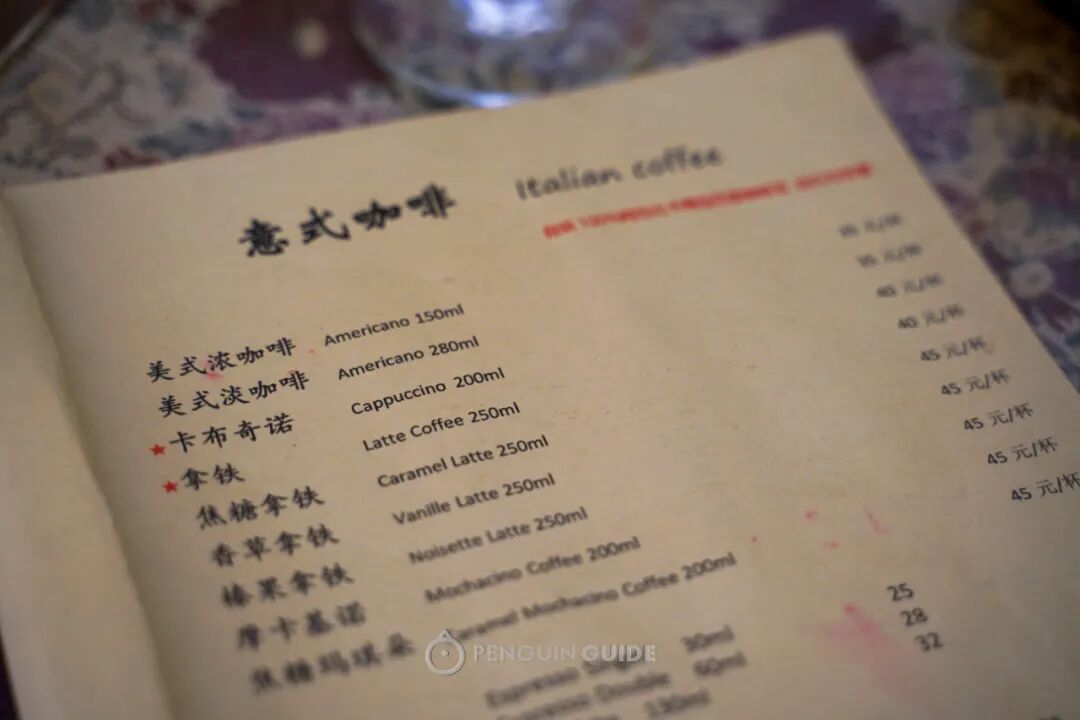 意式咖啡 Italian coffee
美式浓咖啡 Americano 150ml
美式淡咖啡 Americano 280ml 35 元/杯
卡布奇诺 Cappuccino 200ml 40 元/杯
拿铁 Latte Coffee 250ml 40 元/杯
焦糖拿铁 Caramel Latte 250ml 45 元/杯
香草拿铁 Vanille Latte 250ml 45 元/杯
榛果拿铁 Noisette Latte 250ml 45 元/杯
摩卡基诺 Mochacino Coffee 200ml 45 元/杯
焦糖玛琪朵 Caramel Mochacino Coffee 200ml 45 元/杯
Espresso Single 30ml 25
Espresso Double 60ml 28
130ml 32
PENGUIN GUIDE